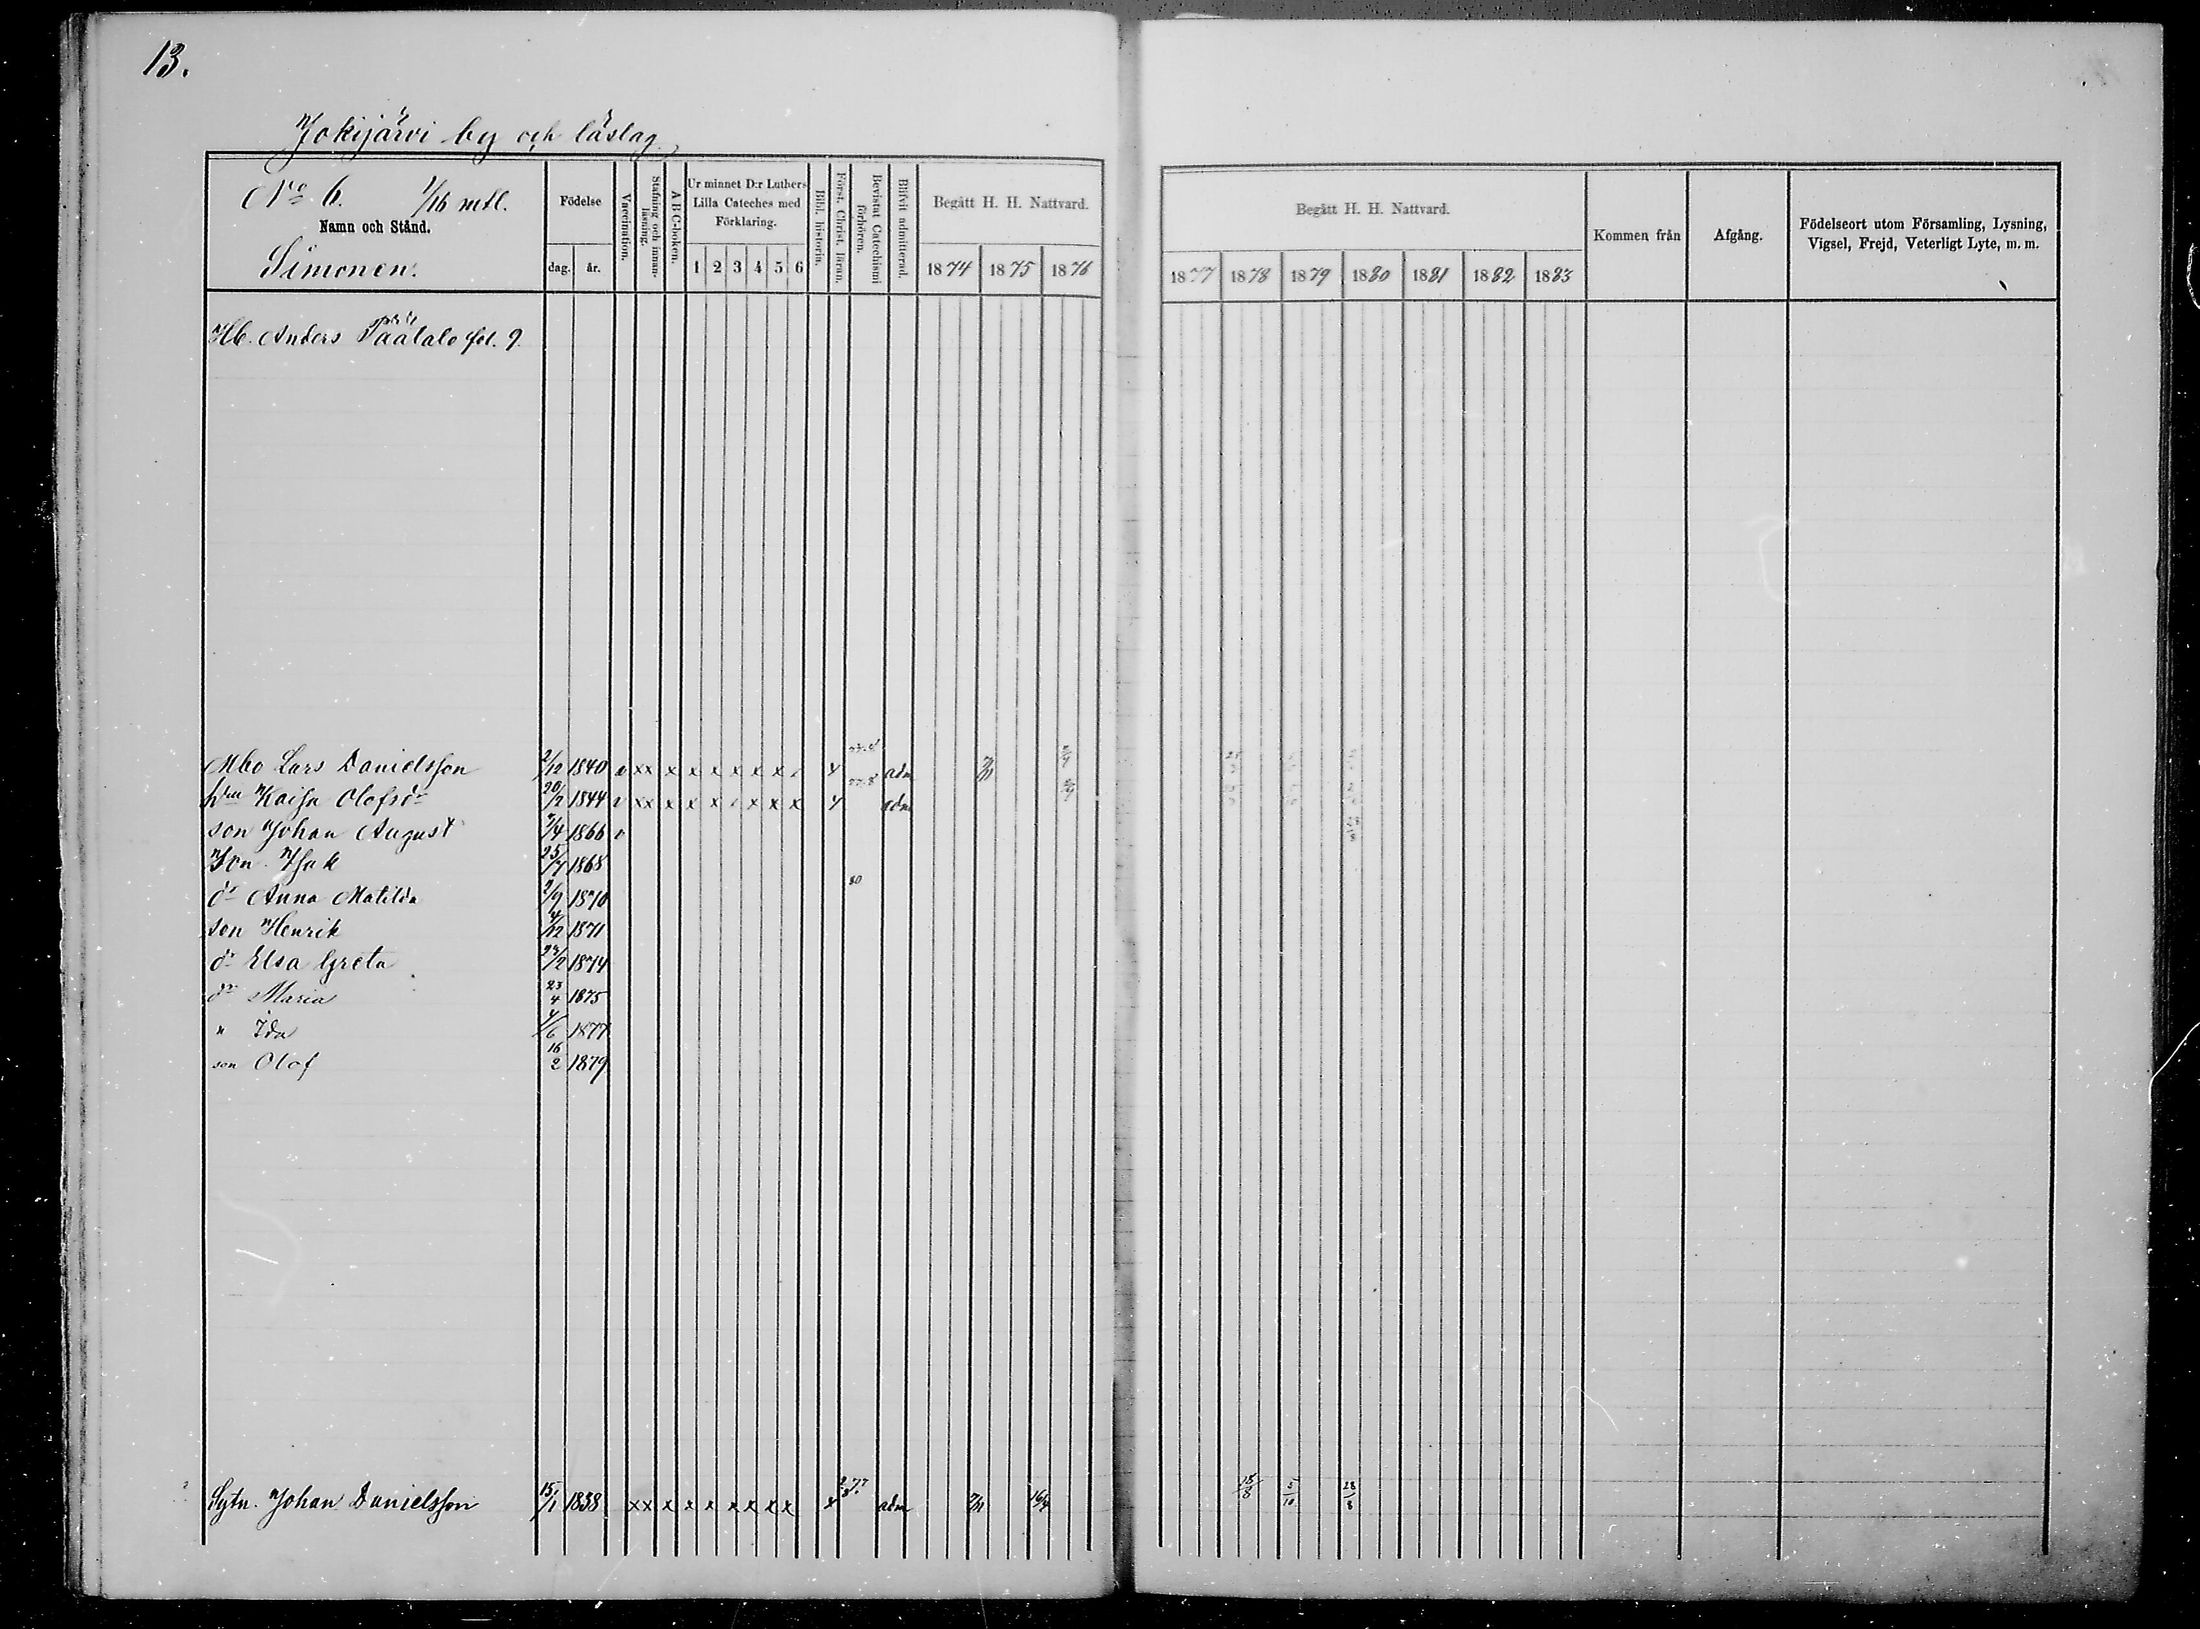 13.
Jokijärvi by och läslag.
No 6. 1/16 mtl.
Namn och Stånd.
Simonen.
Födelse
dag. år.
Vaccination.
Stafning och innanläsning.
A B C-boken.
Ur minnet D:r Luthers Lilla Cateches med Förklaring.
1 2 3 4 5 6
Bibl. historia.
Först. Christ. läran.
Bevistat Catechismi förhören.
Blifvit admitterad.
Begått H. H. Nattvard.
1874 1875 1876
Begått H. H. Nattvard.
1877 1878 1879 1880 1881 1882 1883
Kommen från
Afgång.
Födelseort utom Församling, Lysning, Vigsel, Frejd, Veterligt Lyte, m. m.
Hb. Anders Päätalo fol. 9.
Mbo Lars Danielsson 2/12 1840 v xx x x x x x x x adm 7/11
hru Kaisa Olofsdr 20/2 1844 v xx x x x x x x adm
son Johan August 1866 v 28/8
son Isak 25/7 1868
dr Anna Matilda 2/9 1870 80
son Henrik 4/12 1871
dr Elsa Greta 1874
dr Maria 23/4 1875
" Ida 4/6 1877
son Olof 16/2 1879
Sytn. Johan Danielsson 15/1 1838 xx x x x x x x x x 77 adm 7/11 16/4 18/8 5/10 28/8